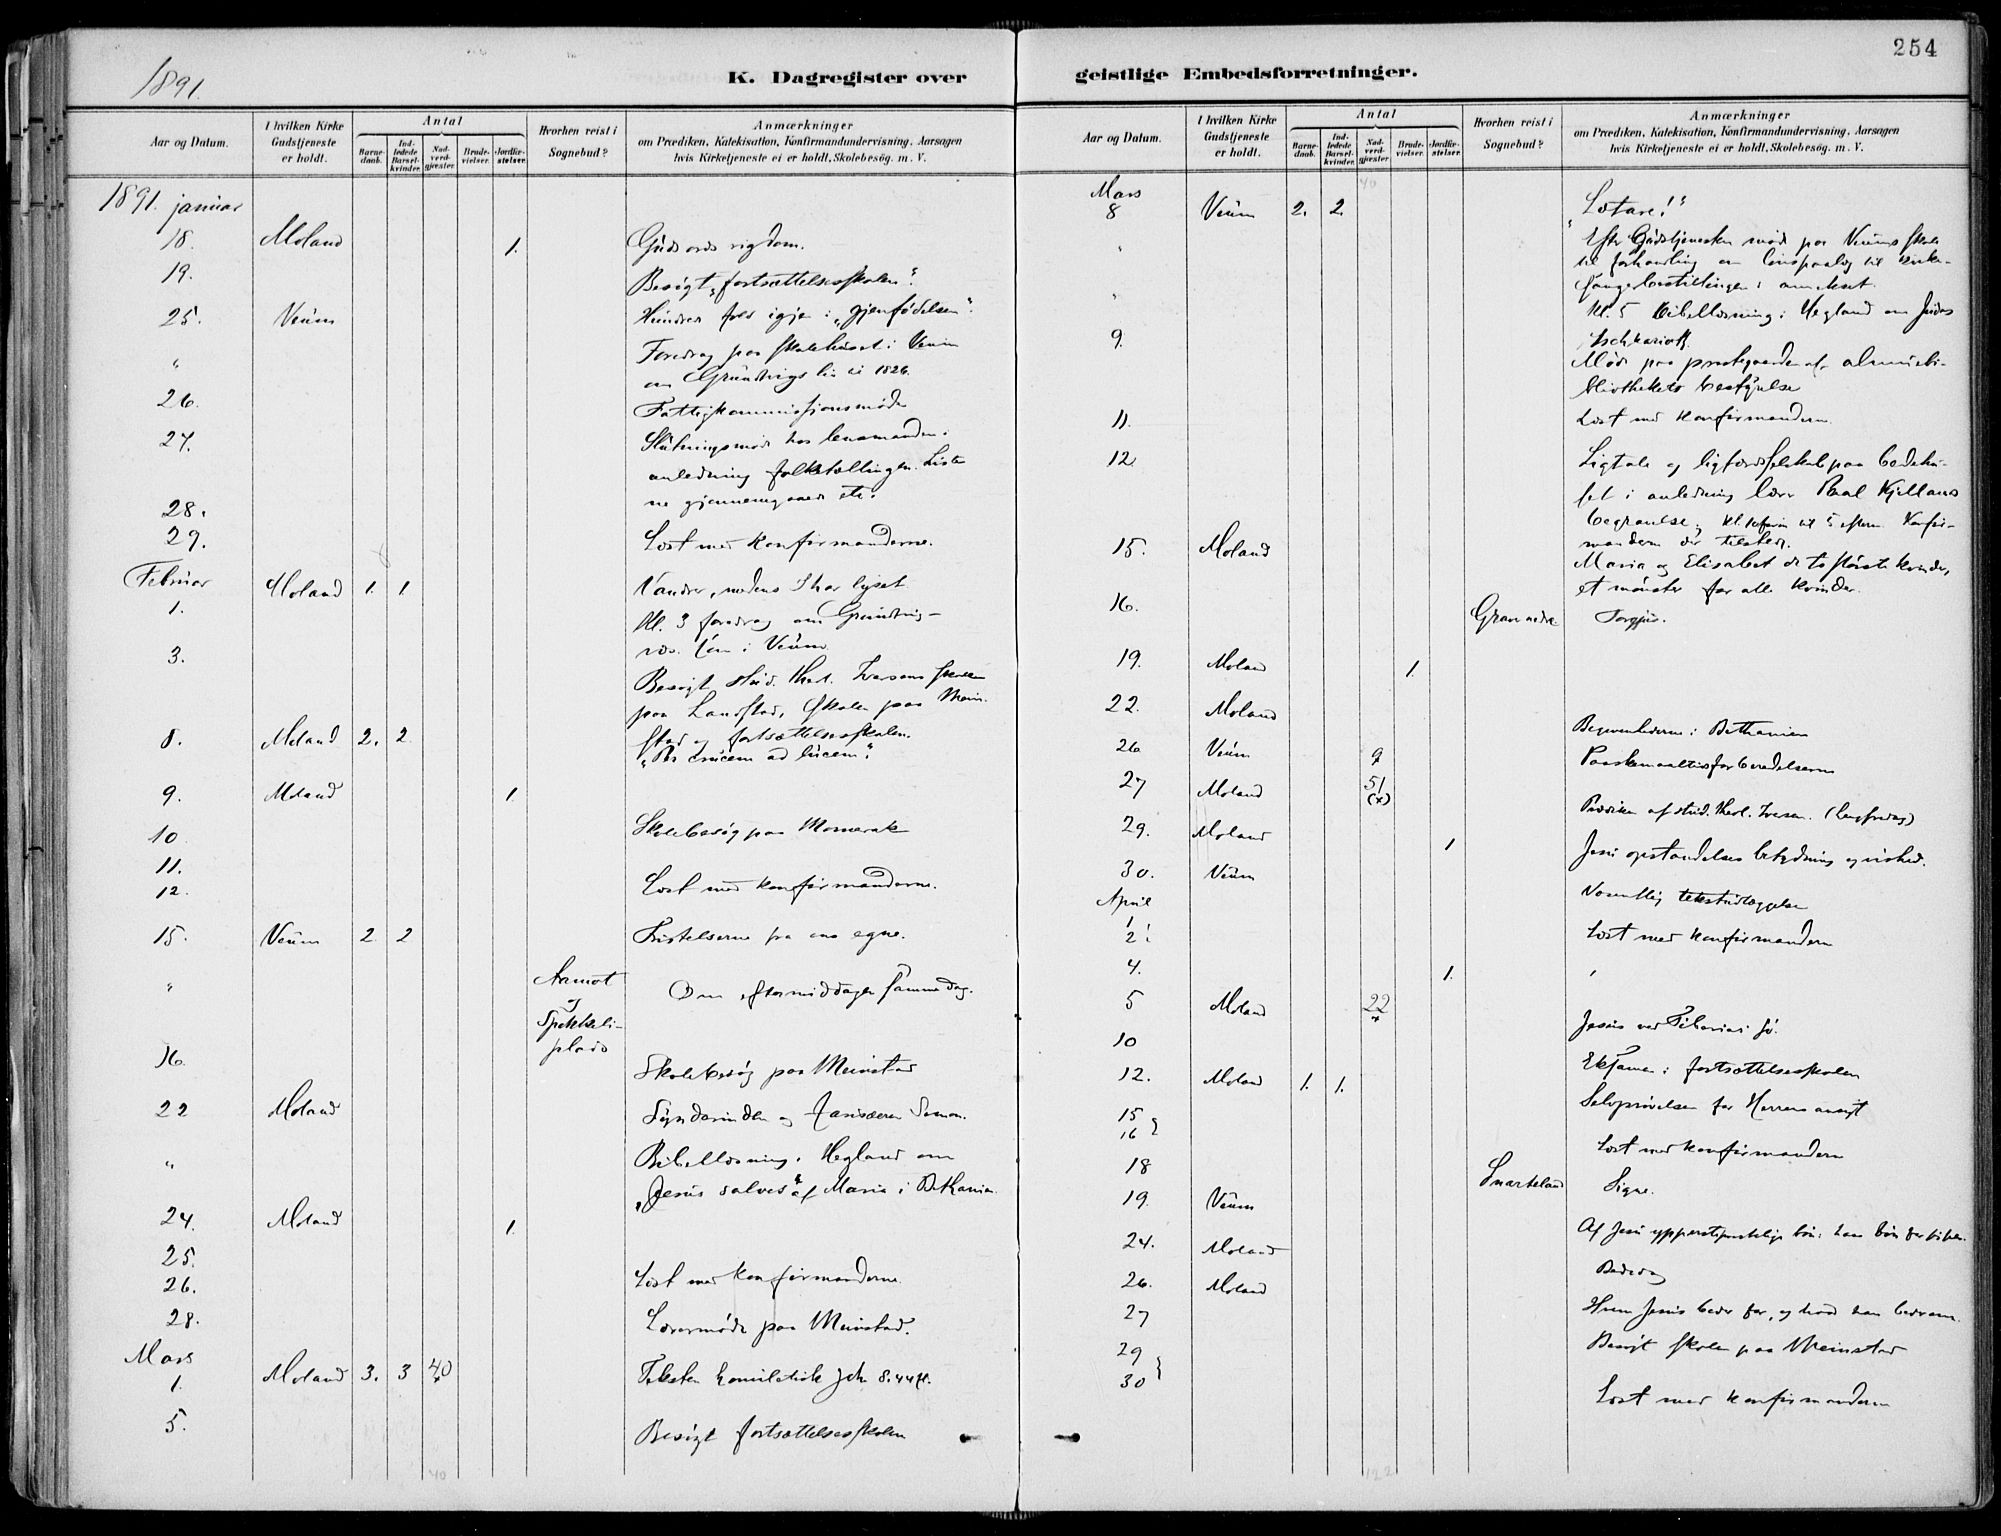 254
1891.
K. Dagregister over
geistlige Embedsforretninger.
Aar og Datum.
I hvilken Kirke Gudstjeneste er holdt.
Antal
Barnedaab.
Indledede Barselkvinder.
Nadverdgjester
Brudevielser.
Jordfæstelser.
Hvorhen reist i Sognebud?
Anmærkninger
om Prædiken, Katekisation, Konfirmandundervisning, Aarsagen
hvis Kirketjeneste ei er holdt, Skolebesög. m. V.
1891. januar
18. Moland 1. Guds ords rigdom.
19. Besøgt „fortsættelsesskolen".
25. Veum igjen i „gjenfødelsen".
" Foredrag paa skolehuset i Veum
om Grundtvigs liv til 1826.
26. Fattigkommissjonsmøde
27. Slutningsmøde hos lensmanden i
anledning folketællingen. Liste
ne gjennemgaaes etc.
28.
29. Læst med konfirmanderne.
Februar
1. Moland 1. 1. Vandrer, medens I har lyset
Kl. 3 foredrag om Grundtvig
i Veum
3. Besøgt stud. theol. Iversens skole
paa Landstad, skolen paa Mein-
stad og fortsættelsesskolen.
8. Moland 2. 2. „Per crucem ad lucem".
9. Moland 1.
10 Skolebesøg paa Momrak
11.
12. Læst med konfirmanderne.
15. Veum 2 2 Fristelserne fra egne.
" Aamot Om eftermiddagen samme dag.
og
plads
16. Skolebesøg paa Meinstad
22 Moland Synderinden og farisæeren Simon.
" Bibellæsning i Hegland om
„Jesus salves" af Maria i Bethania.
24. Moland 1.
25.
26. Læst med konfirmanderne.
28. Lærermøde paa Meinstad.
Mars
1. Moland 3. 3 40 Teksten homiletisk Joh. 8.44 ff.
5. Besøgt fortsættelsesskolen
40
Aar og Datum.
I hvilken Kirke Gudstjeneste er holdt.
Antal
Barnedaab.
Indledede Barselkvinder.
Nadverdgjester
Brudevielser.
Jordfæstelser.
Hvorhen reist i Sognebud?
Anmærkninger
om Prædiken, Katekisation, Konfirmandundervisning, Aarsagen
hvis Kirketjeneste ei er holdt, Skolebesög. m. V.
40
Mars
8 Veum 2. 2. „Lætare!"
" Efter Gudstjenesten møde paa Veums skole
til forhandling om til kirke-
sangerbestillingen i annekset.
" Kl. 5 Bibellæsning i Hegland om Judas
Ischkarioth.
9. Møde paa prestegaarden af almuebi-
bliothekets bestyrelse
11. Læst med konfirmanderne.
12. Ligtale og ligfærdsselskab paa bedehu-
set i anledning lærer Paal Kjellands
begravelse, kl. til 5 efterm. Konfir-
manderne der tilstede.
15. Moland Maria og Elisabet de to største kvinder,
et mønster for alle kvinder.
16. Torgjus.
19. Moland 1.
22. Moland Begivenhederne i Bethanien
26 Veum 9 Paaskemaaltidsforberedelserne
27 Moland 51 (x) Prædiken af stud. theol. Iversen. (Langfredag)
29. Moland 1 Jesu opstandelses betydning og vished.
30. Veum Væsentlig tekstudlæggelse
April
1
2. Læst med konfirmanderne
4. 1.
5 Moland 22 Jesus ved Tiberias sø.
10 Eksamen i fortsættelsesskolen
12. Moland 1. 1. Selvprøvelsen for Herrens ansigt
15
16 Læst med konfirmanderne
18 Snarteland Signe.
19. Veum Af Jesu ypperstepræstelige bøn:
24. Moland Bededag
26. Moland Hvem Jesus beder for, og hvad han beder om.
27 Besøgt skolen paa Meinstad
29
30 Læst med konfirmanderne
122